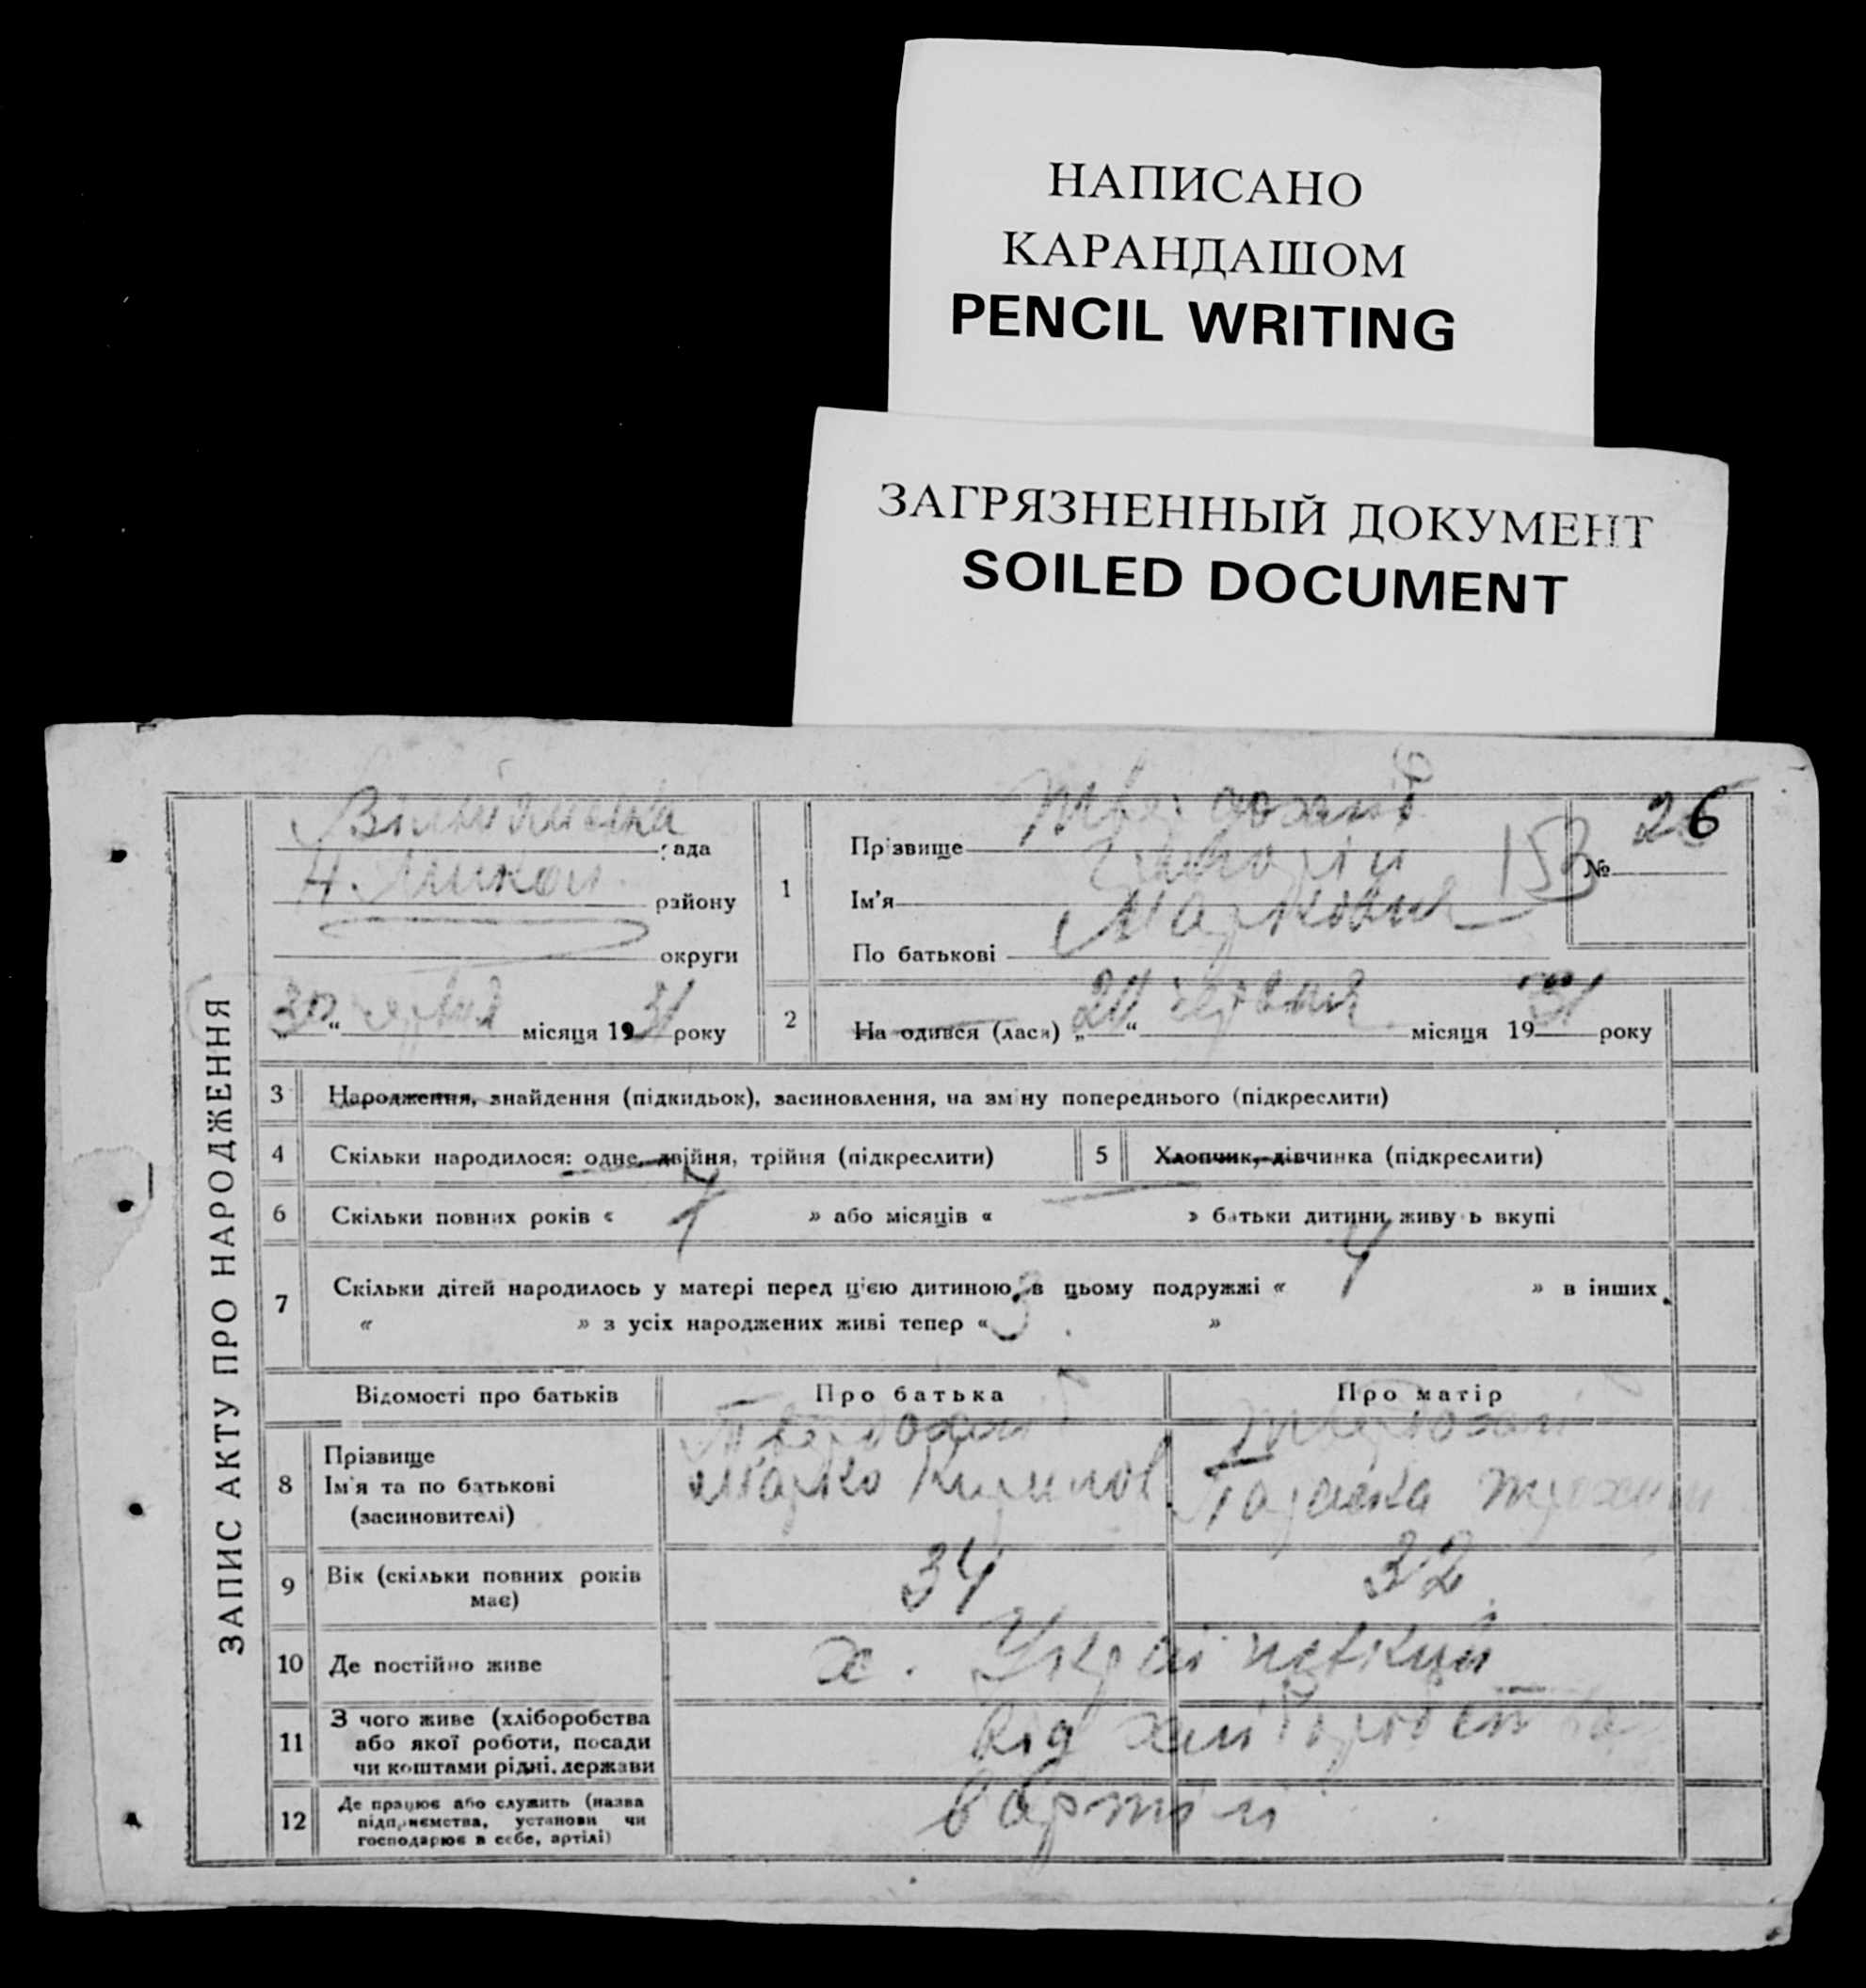 НАПИСАНО
КАРАНДАШОМ
PENCIL WRITING
ЗАГРЯЗНЕННЫЙ ДОКУМЕНТ
SOILED DOCUMENT
ЗАПИС АКТУ ПРО НАРОДЖЕННЯ
рада
району
округи
30 " місяця 1931 року
1
Прізвище
Ім'я
По батькові Маркович
153
№ 26
2 На одився (лася) „ " червня місяця 1931 року
3 Народження, знайдення (підкидьок), засиновлення, на зміну попереднього (підкреслити)
4 Скільки народилося: одне, двійня, трійня (підкреслити)
5 Хлопчик, дівчинка (підкреслити)
6 Скільки повних років « » або місяців « » батьки дитини живуть вкупі
7 Скільки дітей народилось у матері перед цією дитиною, в цьому подружжі « 4 » в інших
« » з усіх народжених живі тепер « 3 »
Відомості про батьків Про батька Про матір
8 Прізвище
Ім'я та по батькові
(засиновителі)
Твердохліб
Марко Кирилов
Твердохліб
Параска
9 Вік (скільки повних років
має) 34 32
10 Де постійно живе х. Український
11 З чого живе (хліборобства
або якої роботи, посади
чи коштами рідні, держави
Від хліборобства
12 Де працює або служить (назва
підприємства, установи чи
господарює в себе, артілі)
в артілі